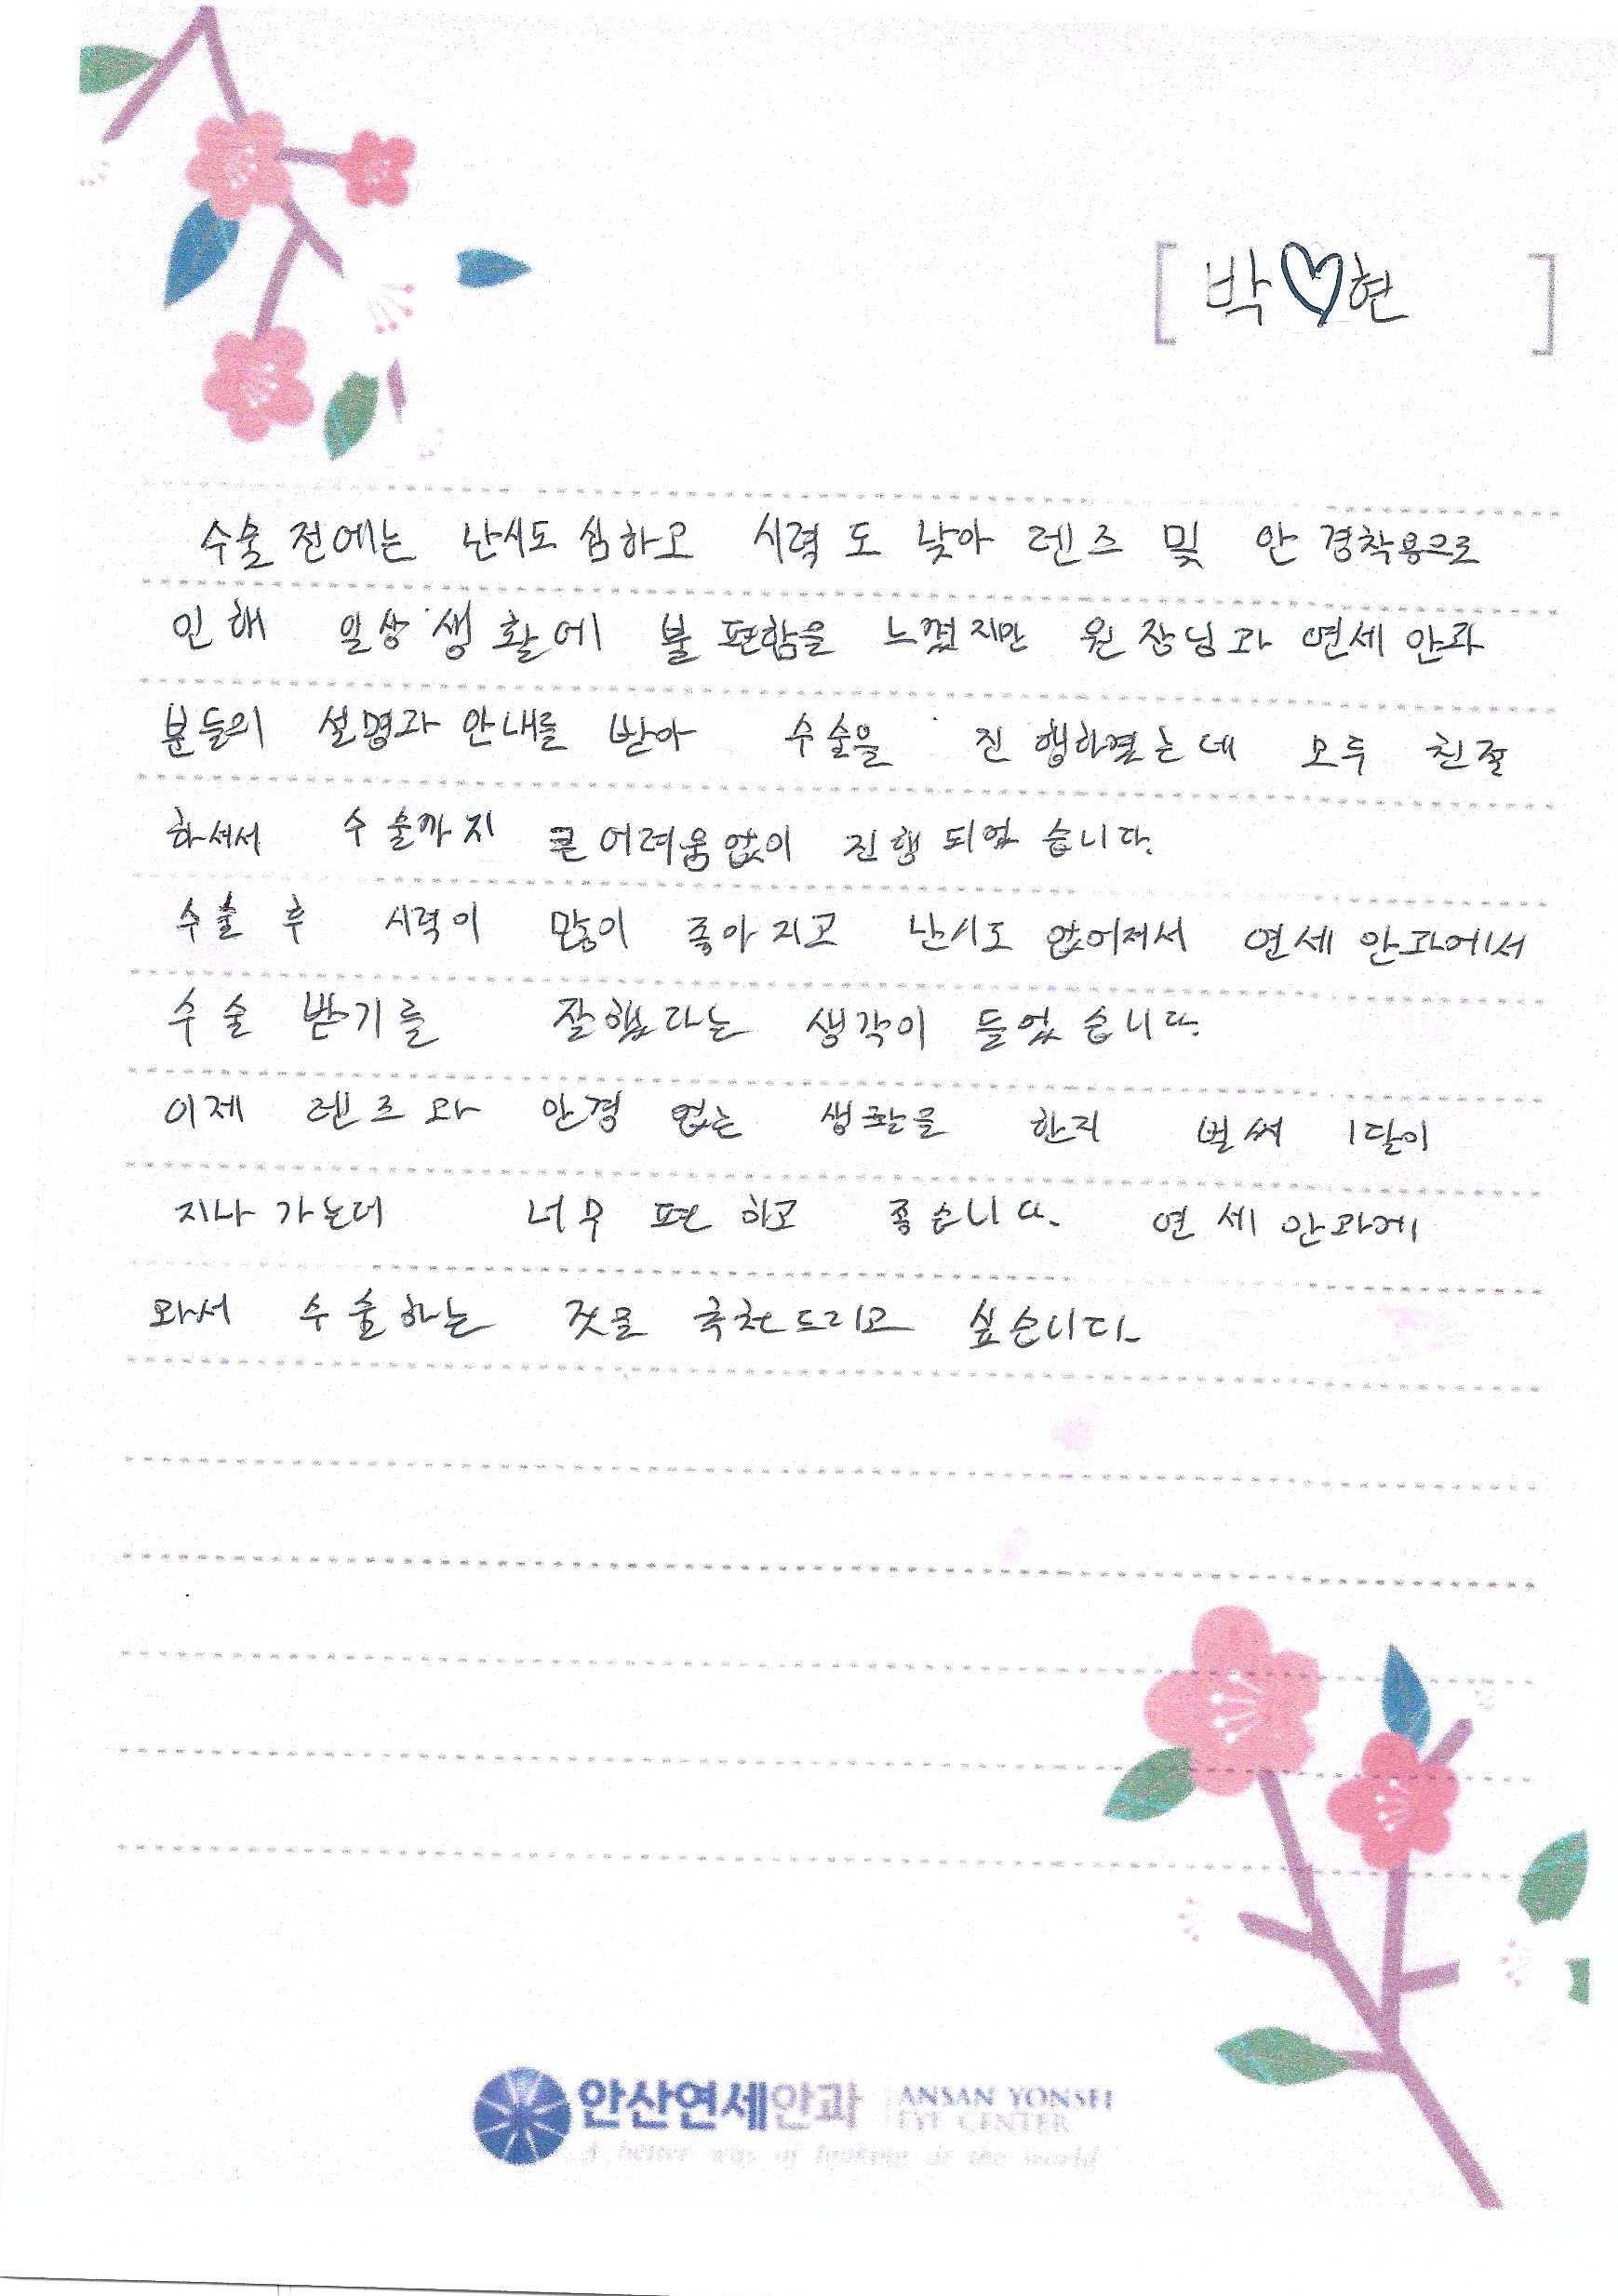 [ 박♡현 ]
수술 전에는 난시도 심하고 시력도 낮아 렌즈 및 안경착용으로
인해 일상생활에 불편함을 느꼈지만 원장님과 연세안과
분들의 설명과 안내를 받아 수술을 진행하였는데 모두 친절
하셔서 수술까지 큰 어려움없이 진행되었습니다.
수술 후 시력이 많이 좋아지고 난시도 없어져서 연세안과에서
수술 받기를 잘했다는 생각이 들었습니다.
이제 렌즈와 안경 없는 생활을 한지 벌써 1달이
지나가는데 너무 편하고 좋습니다. 연세안과에
와서 수술하는 것을 추천드리고 싶습니다.
안산연세안과 ANSAN YONSEI
EYE CENTER
A better way of looking at the world